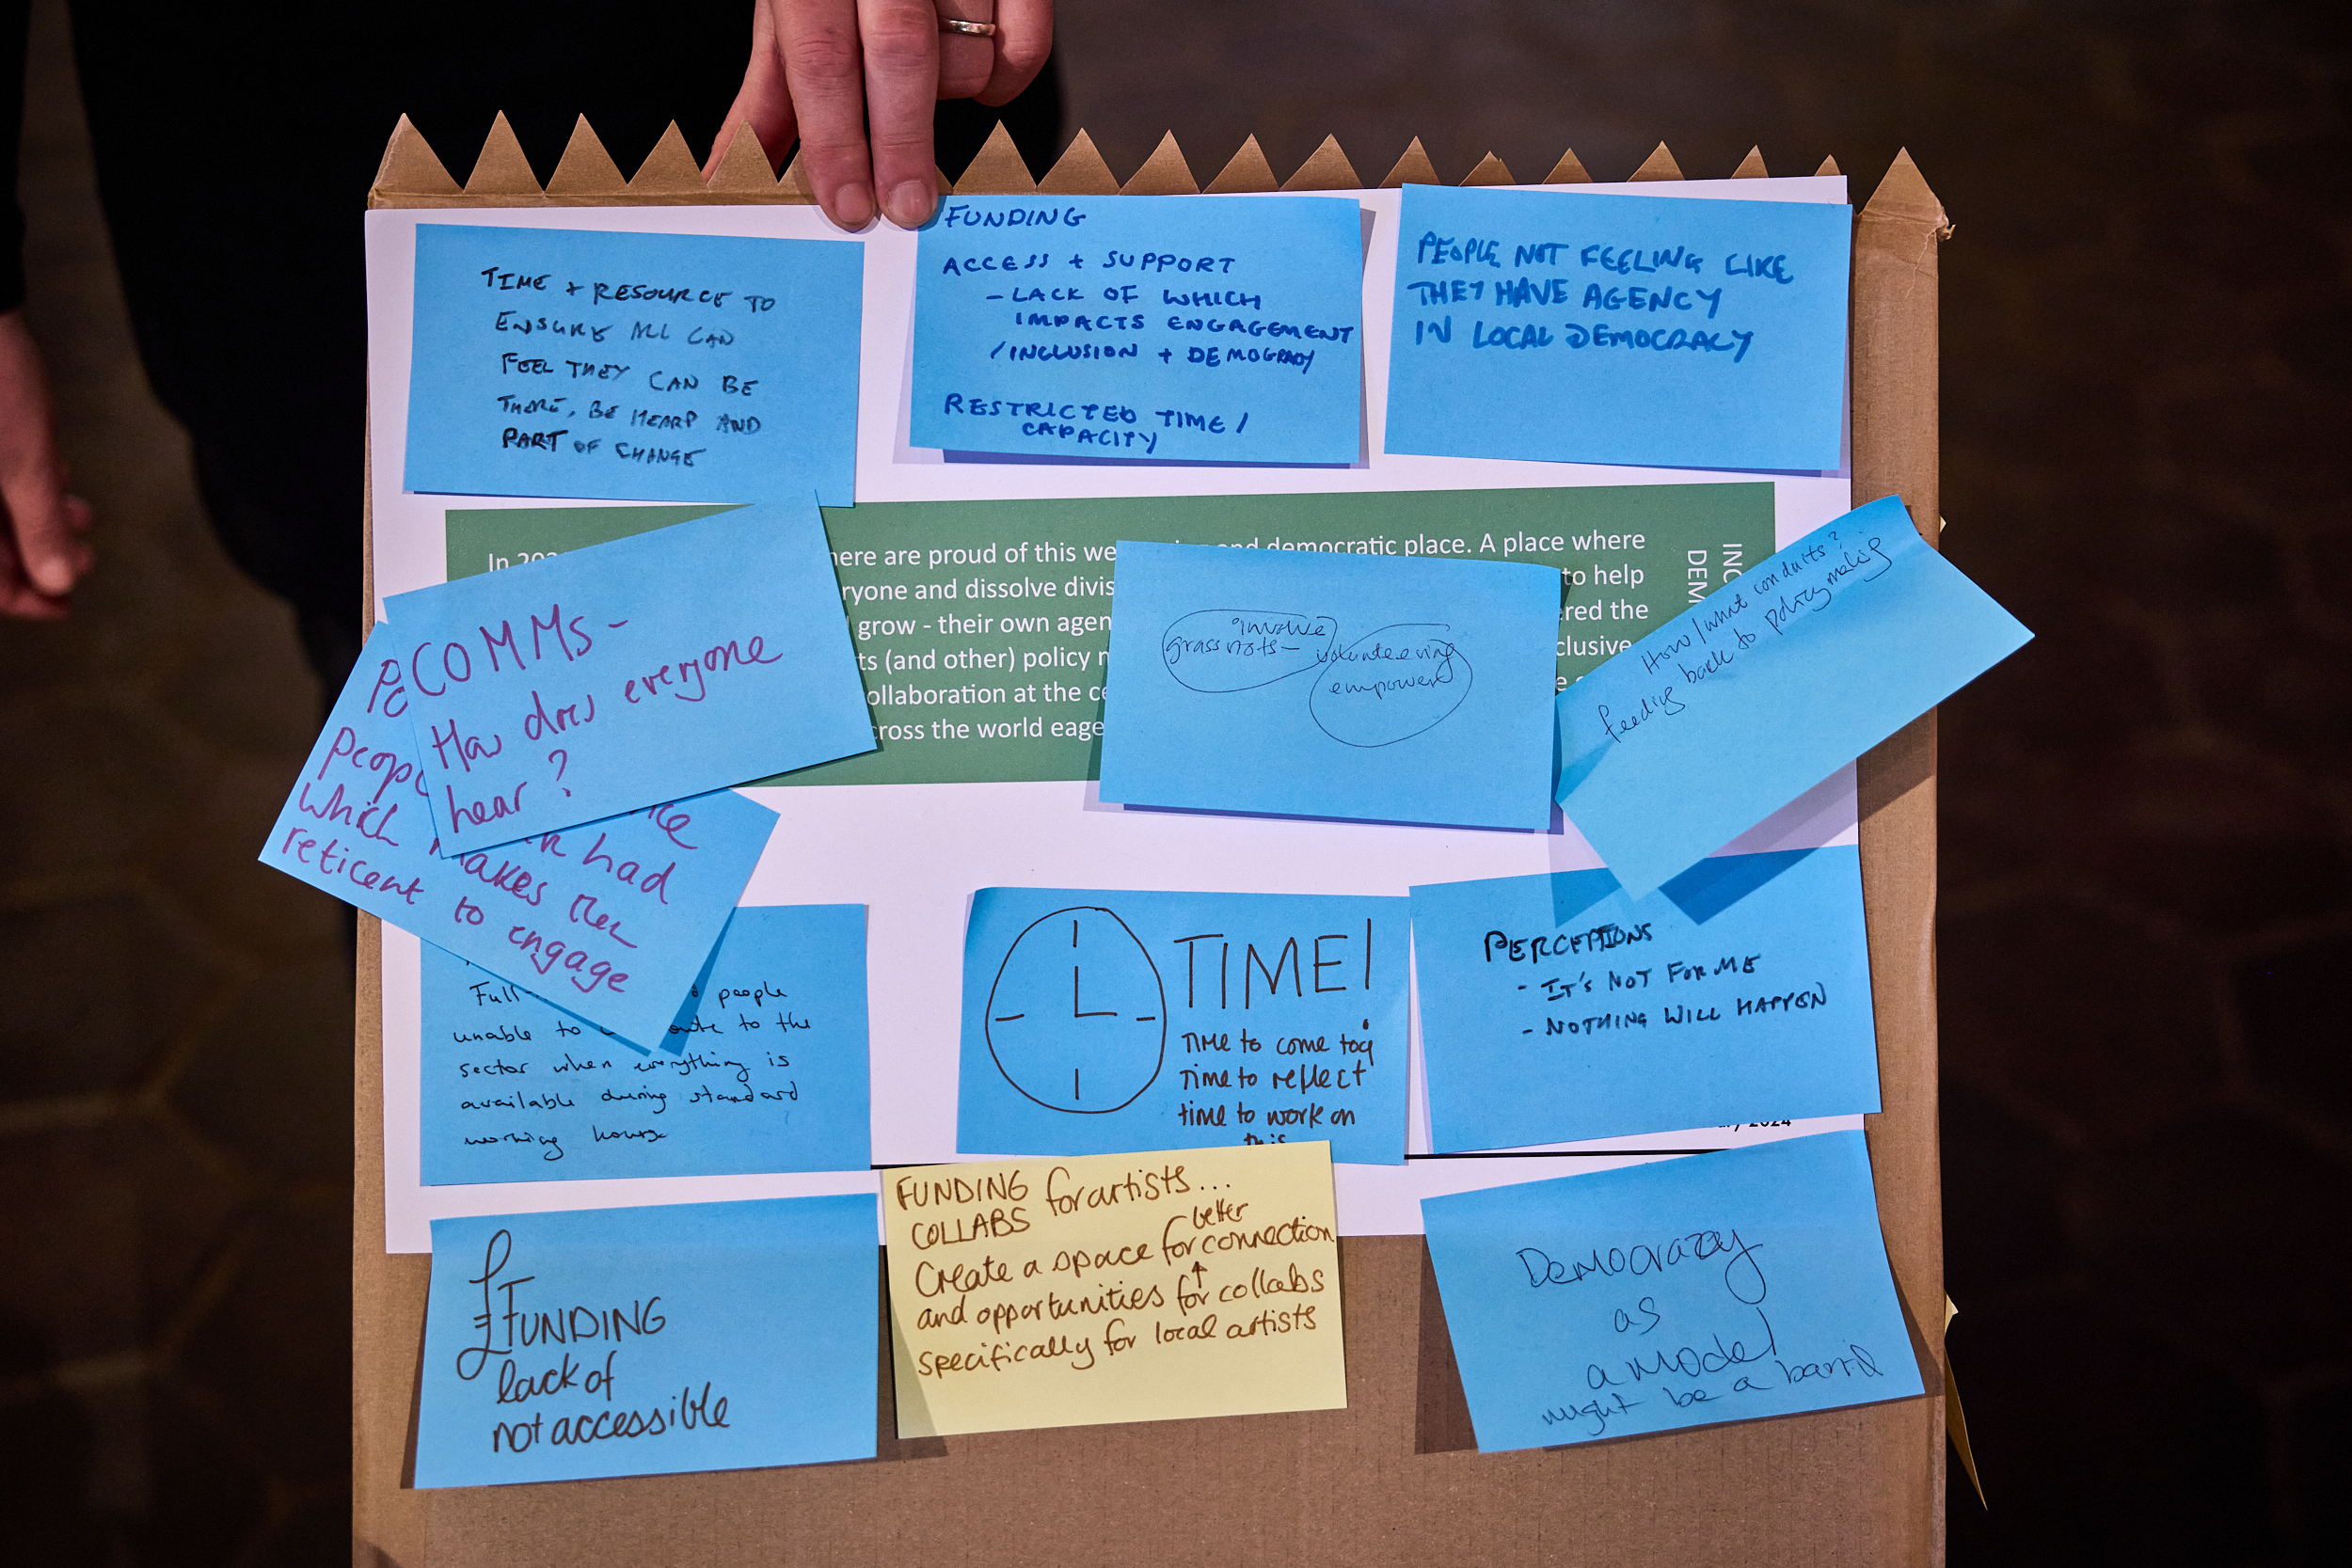 TIME + RESOURCE TO
ENSURE ALL CAN
FEEL THEY CAN BE
THERE, BE HEARD AND
PART OF CHANGE
FUNDING
ACCESS + SUPPORT
- LACK OF WHICH
IMPACTS ENGAGEMENT
/INCLUSION + DEMOCRACY
RESTRICTED TIME /
CAPACITY
PEOPLE NOT FEELING LIKE
THEY HAVE AGENCY
IN LOCAL DEMOCRACY
In
here are proud of this we
and democratic place. A place where
ryone and dissolve divis
to help
grow - their own agen
ered the
ts (and other) policy
clusive
ollaboration at the ce
cross the world eage
INC
DEM
COMMS -
How does everyone
hear?
which makes them
had
reticent to engage
involve
grassroots -
volunteering
empower
How/what conduits?
feeding back to policymaking
Full-
people
unable to
to the
sector when everything is
available during standard
working hours
TIME!
TIME to come tog
Time to reflect
time to work on
this
PERCEPTIONS
- IT'S NOT FOR ME
- NOTHING WILL HAPPEN
2024
£FUNDING
lack of
not accessible
FUNDING for artists...
COLLABS
Create a space for better connection
and opportunities for collabs
specifically for local artists
Democrazy
as
a model
might be a